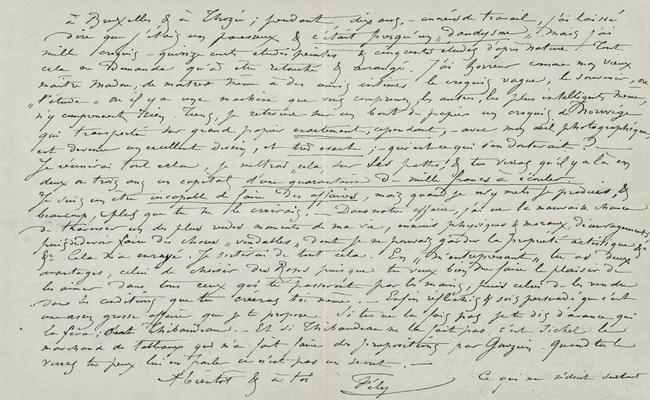 à Bruxelles & à Thozée ; pendant dix ans, – années de travail, j'ai laissé
dire que j'étais un paresseux & c'était presqu'un „dandysme", mais j'ai
mille croquis – quinze cents études peintes & cinquante études d'après nature. – Tout
cela ne demande qu'à être retouché & arrangé. J'ai horreur comme mon vieux
maître Madou, de montrer même à des amis intimes, le croquis vague, le souvenir, ou
„l'étude" où il y a une machine que vous comprenez, les autres, les plus intelligents même,
n'y comprennent rien. Tiens, je retrouve sur un bout de papier un croquis de Norwège
qui transporté sur grand papier exactement, cependant, – avec mon œil photographique,
est devenu un excellent dessin, et très exact ; – qui est-ce qui s'en douterait ? –
Je réunirai tout cela, je mettrai cela sur ses pattes, & tu verras qu'il y a là en
deux ou trois ans un capital d'une quarantaine de mille francs à écouler.
Je suis un être incapable de faire des affaires, mais quand je m'y mets je produis, &
beaucoup, & plus que tu ne le croirais. – Dans notre affaire, j'ai eu la mauvaise chance
de traverser un des plus rudes moments de ma vie, ennuis physiques & moraux, découragements,
puis devoir faire des choses „vendables" dont je ne pouvais garder la propriété artistique &
&c Cela m'a enragé. Je sortirai de tout cela. En „m'entreprenant", tu as deux
avantages, celui de choisir des Rops puisque tu veux bien me faire le plaisir de
les aimer dans tous ceux qui te passeront par les mains, puis celui de les vendre
dans les conditions que tu creeras toi même. – Enfin réfléchis & sois persuadé que c'est
une assez grosse affaire que je te propose. Si tu ne la fais pas je te dis d'avance qui
la fera : Thibaudeau. – Et si Thibaudeau ne la fait pas, c'est Sichel le
marchand de tableaux qui m'a fait faire des propositions par Gouzien. Quand tu le
verras tu peux lui en parler ce n'est pas un secret. –
A bientôt & à toi
Fély
Ce qui me séduit surtout